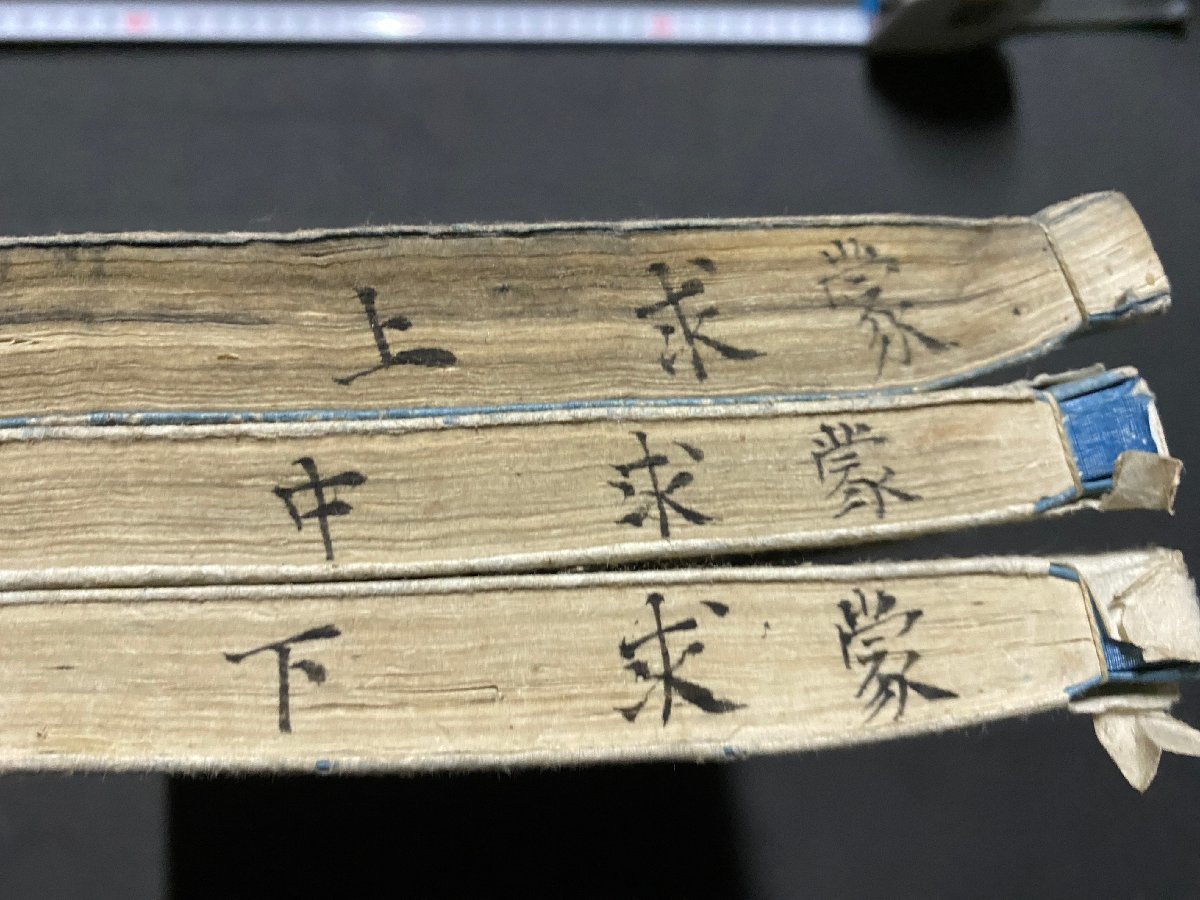 蒙求 上
蒙求 中
蒙求 下